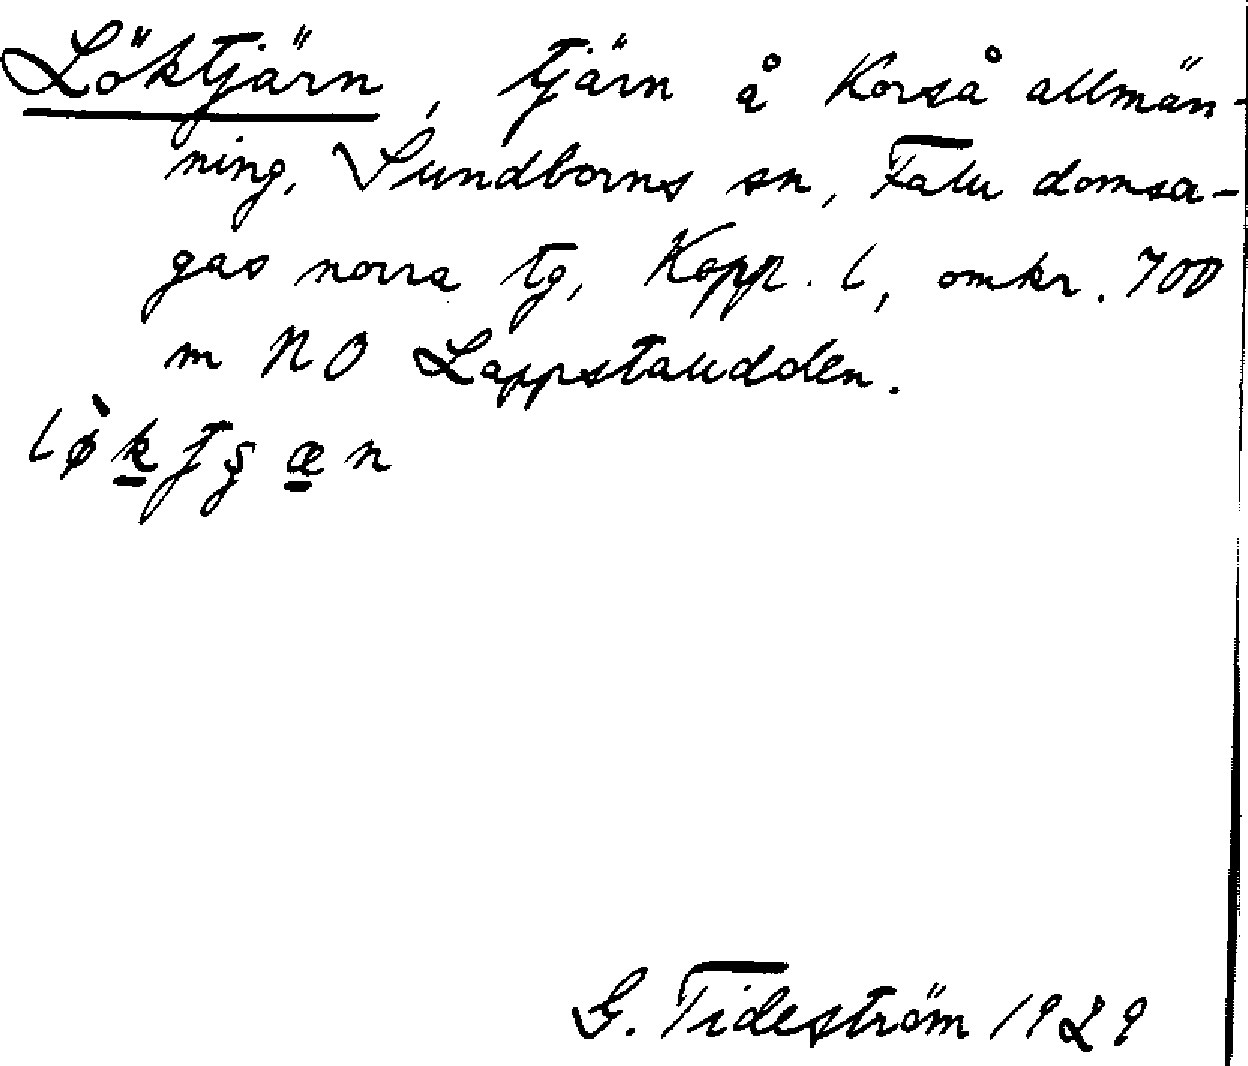 Löktjärn, tjärn å Korså allmän-
ning, Sundborns sn, Falu domsa-
gas norra tg, Kopp. l, omkr. 700
m NO Lappstaudden.
G. Tideström 1929